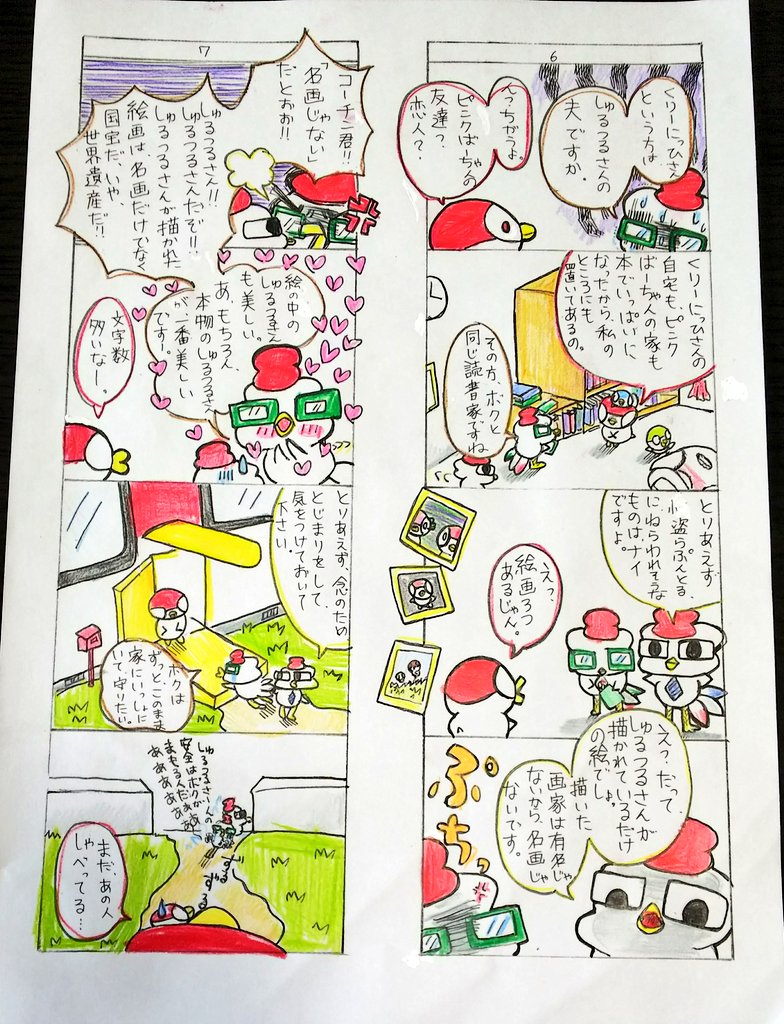 6
くりーにっひさん
という方は
しゅるつるさんの
夫ですか。
えっちがうよ。
ピンクばーちゃんの
友達っ、
恋人？
くりーにっひさんの
自宅も、ピンク
ばーちゃんの家も
本でいっぱいに
なったから、私の
ところにも
置いてあるの。
その方、ボクと
同じ読書家ですね
とりあえず
小盗らぷんとる、
にねらわれそうな
ものは、ナイ
ですよ。
えっ、
絵画3つ
あるじゃん。
えっ？だって、
しゅるつるさんが
描かれているだけ
の絵でしょ。
描いた
画家は有名じゃ
ないから、名画じゃ
ないです。
ぷちっ
7
コーチン君!!
「名画じゃない」
だとぉぉ!!
しゅるつるさん!!
しゅるつるさんだぞ!!
しゅるつるさんが描かれた
絵画は、名画だけでなく
国宝だ、いや、
世界遺産だ!!
絵の中の
しゅるつるさん
も美しい。
あ、もちろん
本物のしゅるつるさん
が一番美しい
です！
文字数
多いなー。
とりあえず、念のため
とじまりをして、
気をつけておいて
下さい。
ボクは
ずっと、このまま
家にいっしょに
いて守りたい。
しゅるつるさんの
安全はボクが
まもるんだぁぁぁ
ああああああ
ずる
ずる
まだ、あの人
しゃべってる…